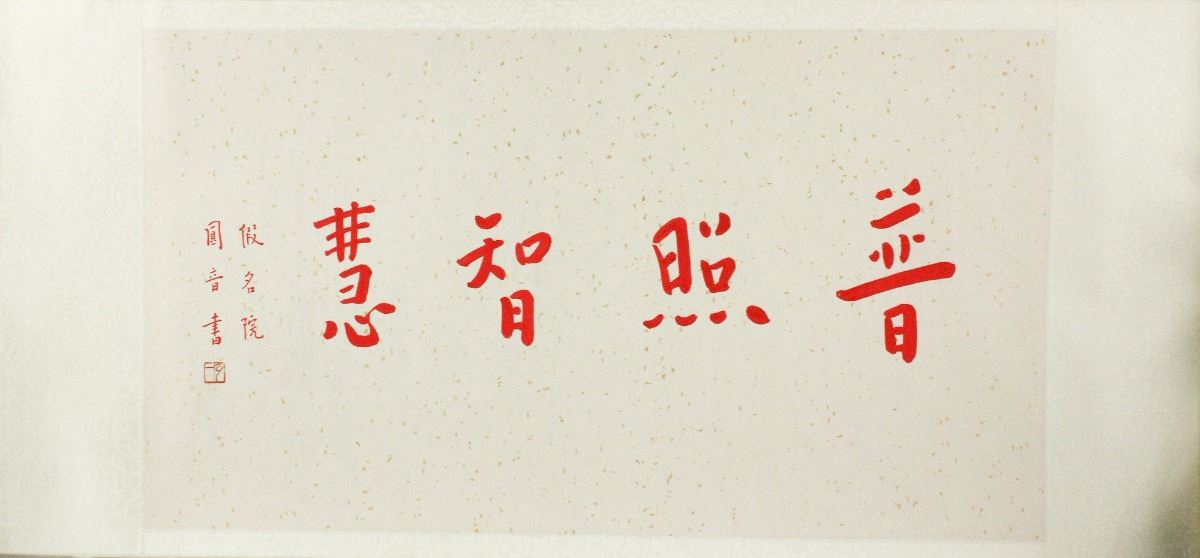 普照智慧
假名院
圓音書